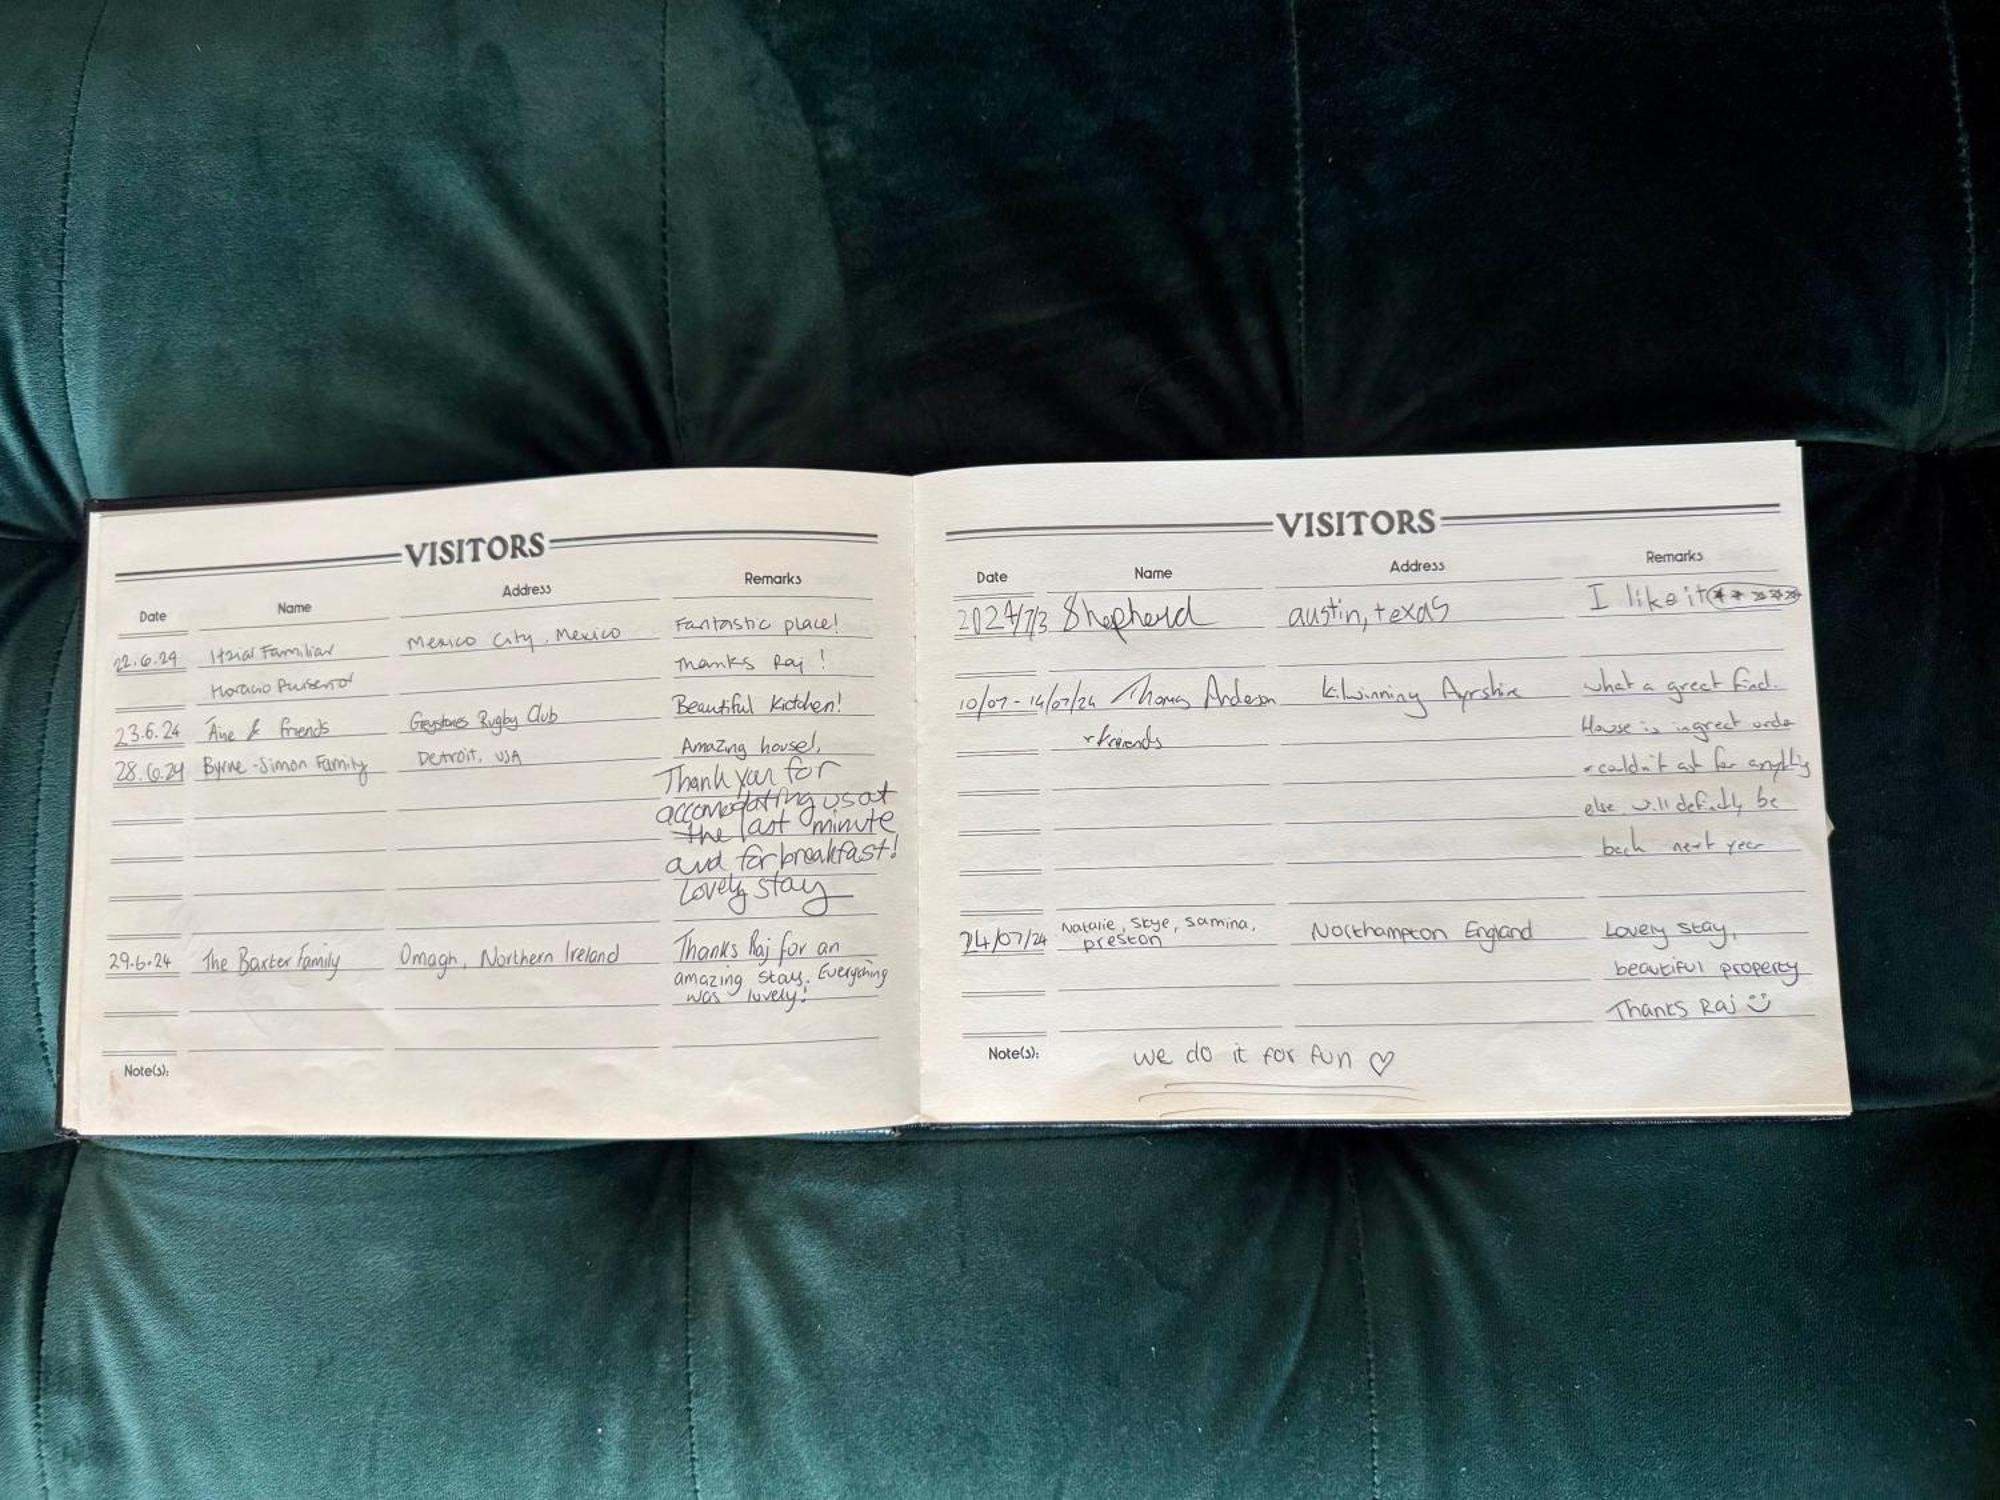 VISITORS
Date Name Address Remarks
22.6.24 Itziar Familiar Mexico City, Mexico Fantastic place!
Horacio Thanks Raj!
23.6.24 Áine & friends Greystones Rugby Club Beautiful Kictchen!
28.6.24 Byrne-Simon Family Detroit, USA Amazing house!,
Thank you for
accomodating us at
the last minute
and for breakfast!
Lovely stay
29.6.24 The Baxter Family Omagh, Northern Ireland Thanks Raj for an
amazing stay. Everything
was lovely!
Note(s):
VISITORS
Date Name Address Remarks
2024/7/3 Shepherd austin, texas I like it
10/07-14/07/24 Thomas Anderson Kilwinning Ayrshire what a great find.
+ friends House is in great order
+ couldn't ask for anything
else. will definitely be
back next year
24/07/24 Natalie, Skye, Samina, Northampton England Lovely stay,
preston
beautiful property
Thanks Raj
Note(s): We do it for fun ♡